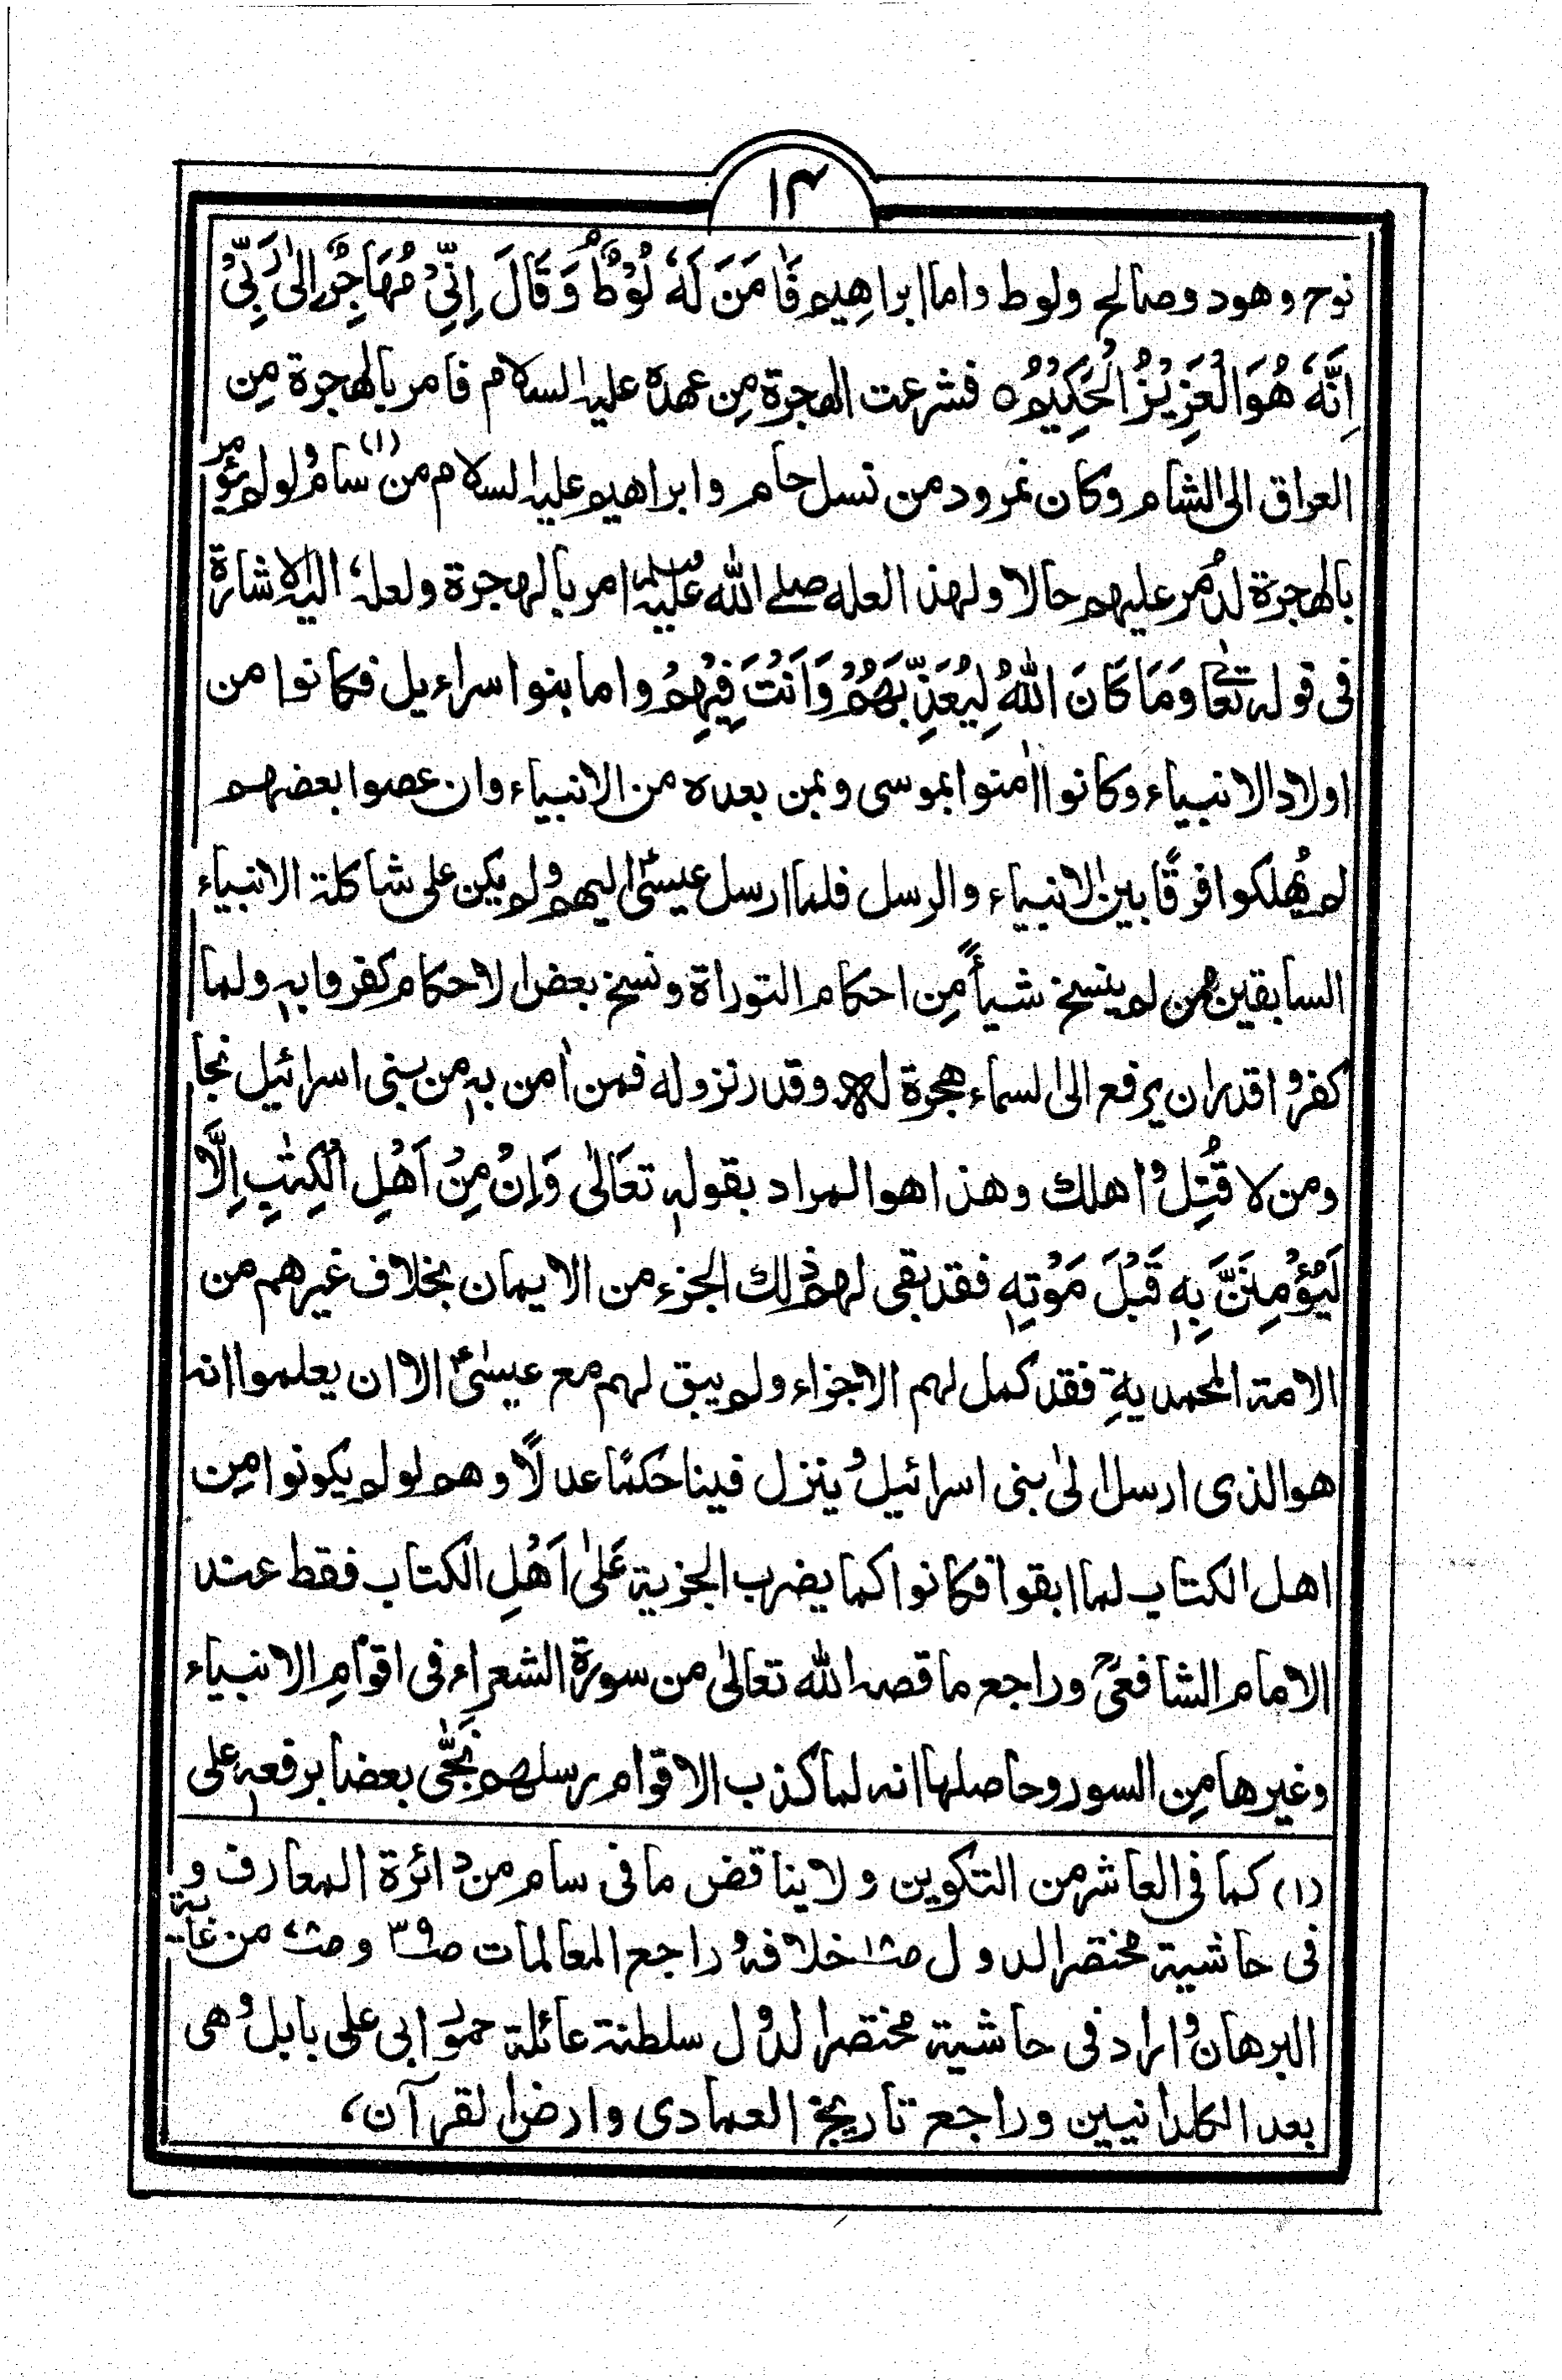 ١٣
نوح وهود وصالح ولوط واما ابراهيم فَاٰمَنَ لَهٗ لُوْطٌ وَقَالَ اِنِّىْ مُهَاجِرٌ اِلىٰ رَبِّىْ
اِنَّهٗ هُوَ الْعَزِيْزُ الْحَكِيْمُ ○ فشرعت الهجرة مِن عهده عليه السلام فامر بالهجرة مِن
العراق الى الشام وكان نمرود من نسل حام وابراهيم عليه السلام من (١) سام ولو لم يؤمر
بالهجرة لدُمر عليهم حالا ولهذ العله صلے الله عليه وسلم امر بالهجرة ولعله، اليه الاشارة
فى قوله تعالے وَمَا كَانَ اللهُ لِيُعَذِّبَهُمْ وَاَنْتَ فِيْهِمْ واما بنوا اسراءيل فكانوا من
اولاد الانبياء وكانوا اٰمنوا بموسى وبمن بعده من الانبياء وان عصوا بعضهم
لم يُهلكوا فرقًا بين الانبياء والرسل فلما ارسل عيسىٰؑ اليهم ولم يكن على شاكلة الانبياء
السابقين ممن لم ينسخ شيأً مِن احكام التوراة ونسخ بعض الاحكام كفروا به ولما
كفروا قدر ان يرفع الى السماء هجرة لهم وقدر نزوله فمن اٰمن به من بنى اسرائيل نجا
ومن لا قُتِل واهلك وهذا هو المراد بقوله تعَالىٰ وَاِنْ مِنْ اَهْلِ الْكِتٰبِ اِلَّا
لَيُؤْمِنَنَّ بِهٖ قَبْلَ مَوْتِهٖ فقد بقى لهم ذلك الجزء من الايمان بخلاف غيرهم من
الامة المحمدية فقد كمل لهم الاجزاء ولم يبق لهم مع عيسىٰؑ الا ان يعلموا انه
هو الذى ارسل الىٰ بنى اسرائيل وينزل فينا حكمًا عدلًا وهم لو لم يكونوا مِن
اهل الكتاب لما ابقوا فكانوا كما يضرب الجزية عَلىٰ اَهْلِ الكتاب فقط عند
الامام الشافعىؒ وراجع ما قصه الله تعالىٰ من سورة الشعراء فى اقوامِ الانبياء
وغيرها مِن السور وحاصلها انه لما كذب الاقوام رسلهم نَجّٰى بعضا برفعه على
(١) كما فى العاشر من التكوين ولا يناقض ما فى سام من دائرة المعارف و
فى حاشية مختصر الدول خلافه وراجع المعالمات و من غاية
البرهان واراد فى حاشية مختصر الدول سلطنة عائلة حمورابى على بابل وهى
بعد الكلدانيين وراجع تاريخ العمادى وارض القرآن،